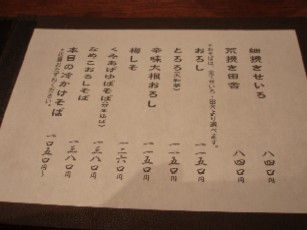 細挽きせいろ 八四〇円
荒挽き田舎 八四〇円
おろし 一一五〇円
とろろ 一一五〇円
辛味大根おろし 一一五〇円
梅しそ 一二六〇円
くみあげゆばそば 一三八〇円
なめこおろしそば 一三八〇円
本日の冷かけそば 一〇五〇円〜